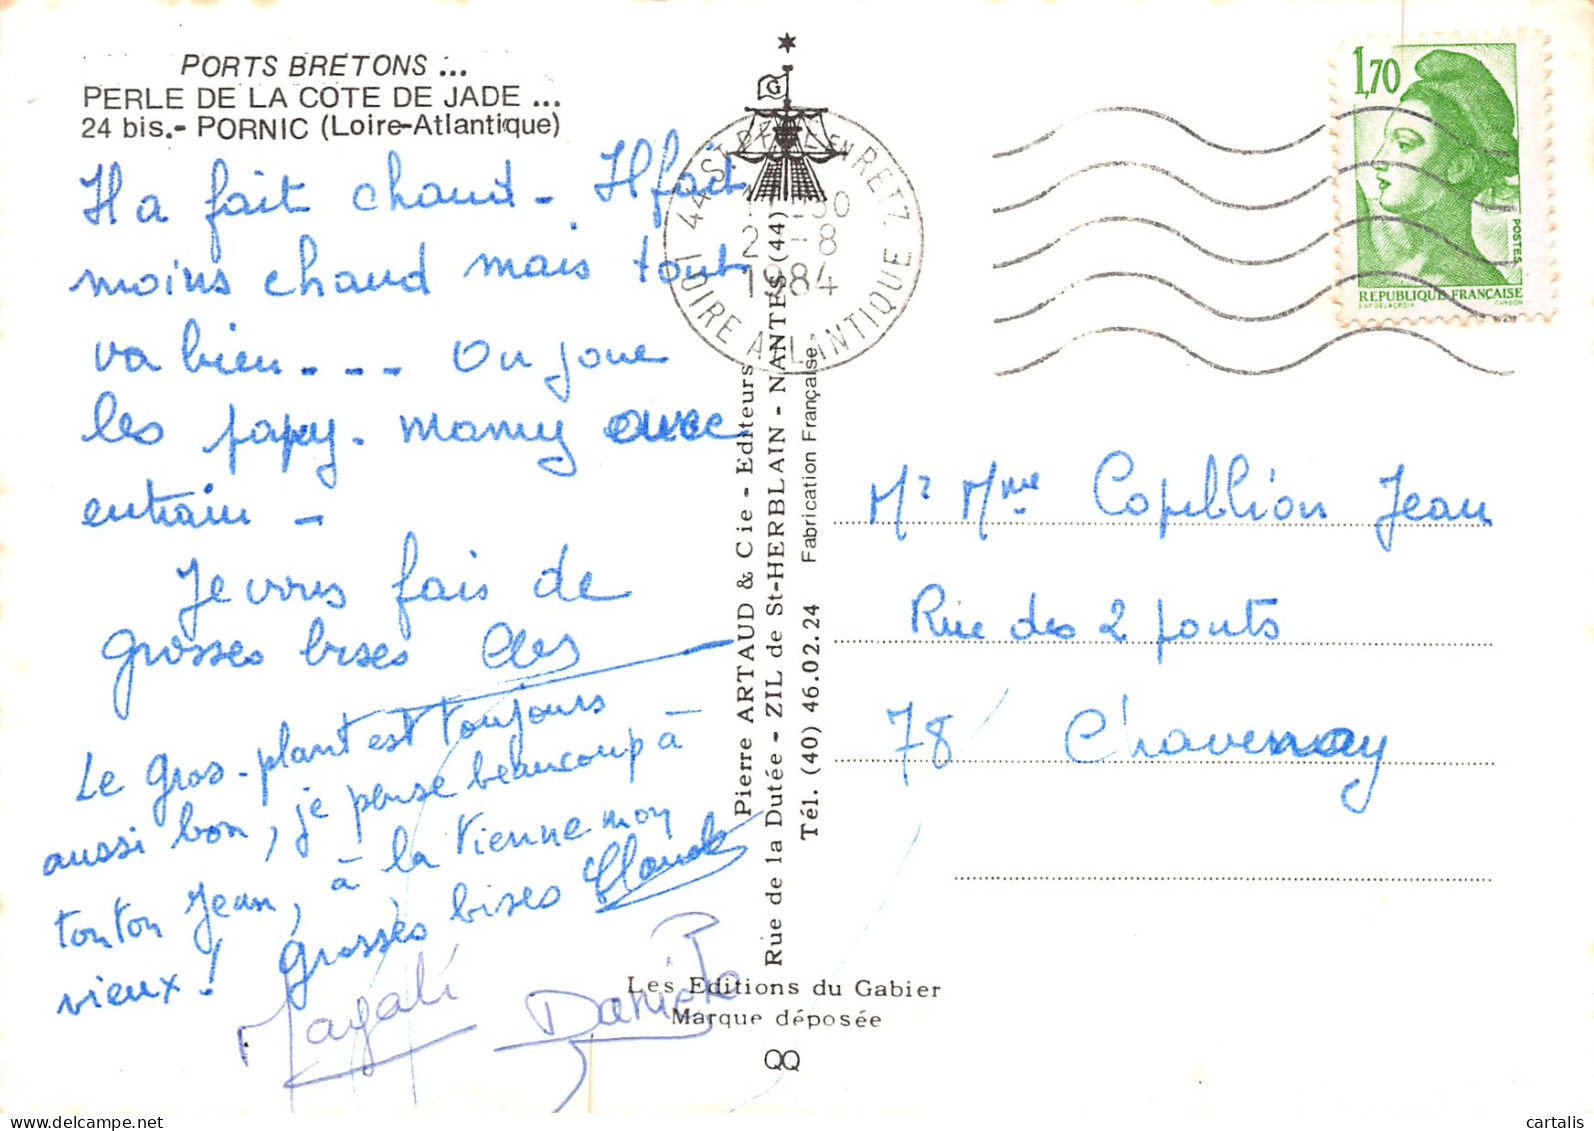 PORTS BRETONS ...
PERLE DE LA COTE DE JADE ...
24 bis.- PORNIC (Loire-Atlantique)
Il a fait chaud - Il fait
moins chaud mais tout
va bien - - - - On joue
les papy - mamy avec
entrain -
Je vous fais de
grosses bises
Le Gros-plant est toujours
aussi bon, je pense beaucoup à
tonton Jean, à la Vienne mon
vieux! Grosses bises Claude
Magali
Daniel
Pierre ARTAUD & Cie - Editeurs
Rue de la Dutée - ZIL de St-HERBLAIN - NANTES (44)
Tél. (40) 46.02.24 Fabrication Française
Les Editions du Gabier
Marque déposée
G
44 ST PERE EN RETZ
-8
1984
LOIRE ATLANTIQUE
1,70
POSTES
REPUBLIQUE FRANÇAISE
Mr Mme Copillion Jean
Rue des 2 ponts
78 Chavenay
cartalis